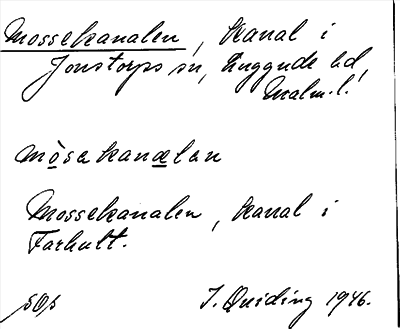 Mossekanalen, kanal i
Jonstorps sn, Luggude hd,
Malm. l.
mòsakanælen
Mossekanalen, kanal i
Farhult.
I. Quiding 1946.